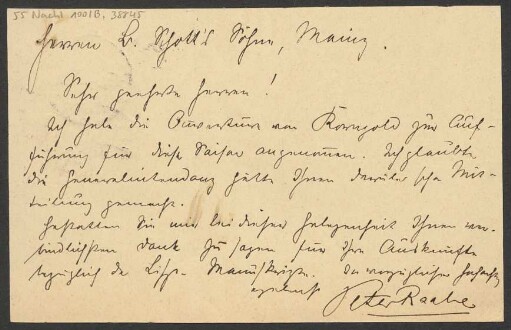 55 Nachl 100/B, 38845
Herren B. Schott's Söhne, Mainz.
Sehr geehrte Herren!
Ich habe die Ouverture von Korngold zur Auf-
führung für diese Saison angenommen. Ich glaubte
die Generalintendanz hätte Ihnen darüber schon Mit-
teilung gemacht.
Gestatten Sie mir bei dieser Gelegenheit Ihnen ver-
bindlichsten Dank zu sagen für Ihre Auskünfte
bezüglich der Liszt-Manuskripte. In vorzüglicher Hochachtung
ergebenst Peter Raabe